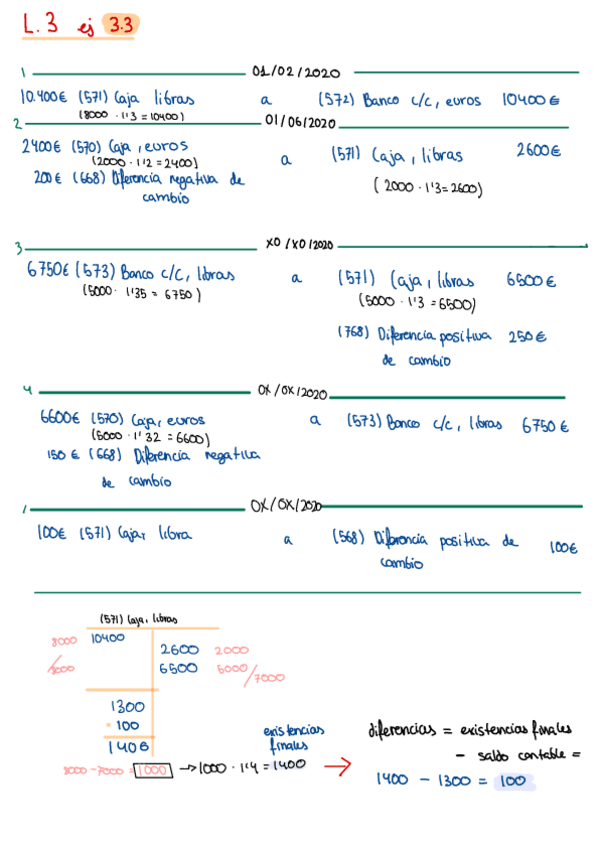 L.3 ej 3.3
1 01/02/2020
10.400€ (571) Caja libras a (572) Banco c/c, euros 10400€
(8000 · 1'3 = 10400)
2 01/06/2020
2400€ (570) Caja, euros a (571) Caja, libras 2600€
(2000 · 1'2 = 2400) (2000 · 1'3 = 2600)
200€ (668) Diferencia negativa de
cambio
3 X0/X0/2020
6750€ (573) Banco c/c, libras a (571) Caja, libras 6500€
(5000 · 1'35 = 6750) (5000 · 1'3 = 6500)
(768) Diferencia positiva 250€
de cambio
4 0X/0X/2020
6600€ (570) Caja, euros a (573) Banco c/c, libras 6750€
(5000 · 1'32 = 6600)
150€ (668) Diferencia negativa
de cambio
0X/0X/2020
100€ (571) Caja, libra a (568) Diferencia positiva de 100€
cambio
(571) Caja, libras
8000 10400
2600 2000
6500 5000/7000
1300
100
1400
8000 - 7000 = 1000 → 1000 · 1'4 = 1400
existencias
finales
diferencias = existencias finales
- saldo contable =
1400 - 1300 = 100